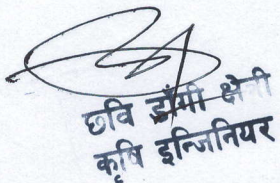 छवि डाँगी क्षेत्री
कृषि इन्जिनियर